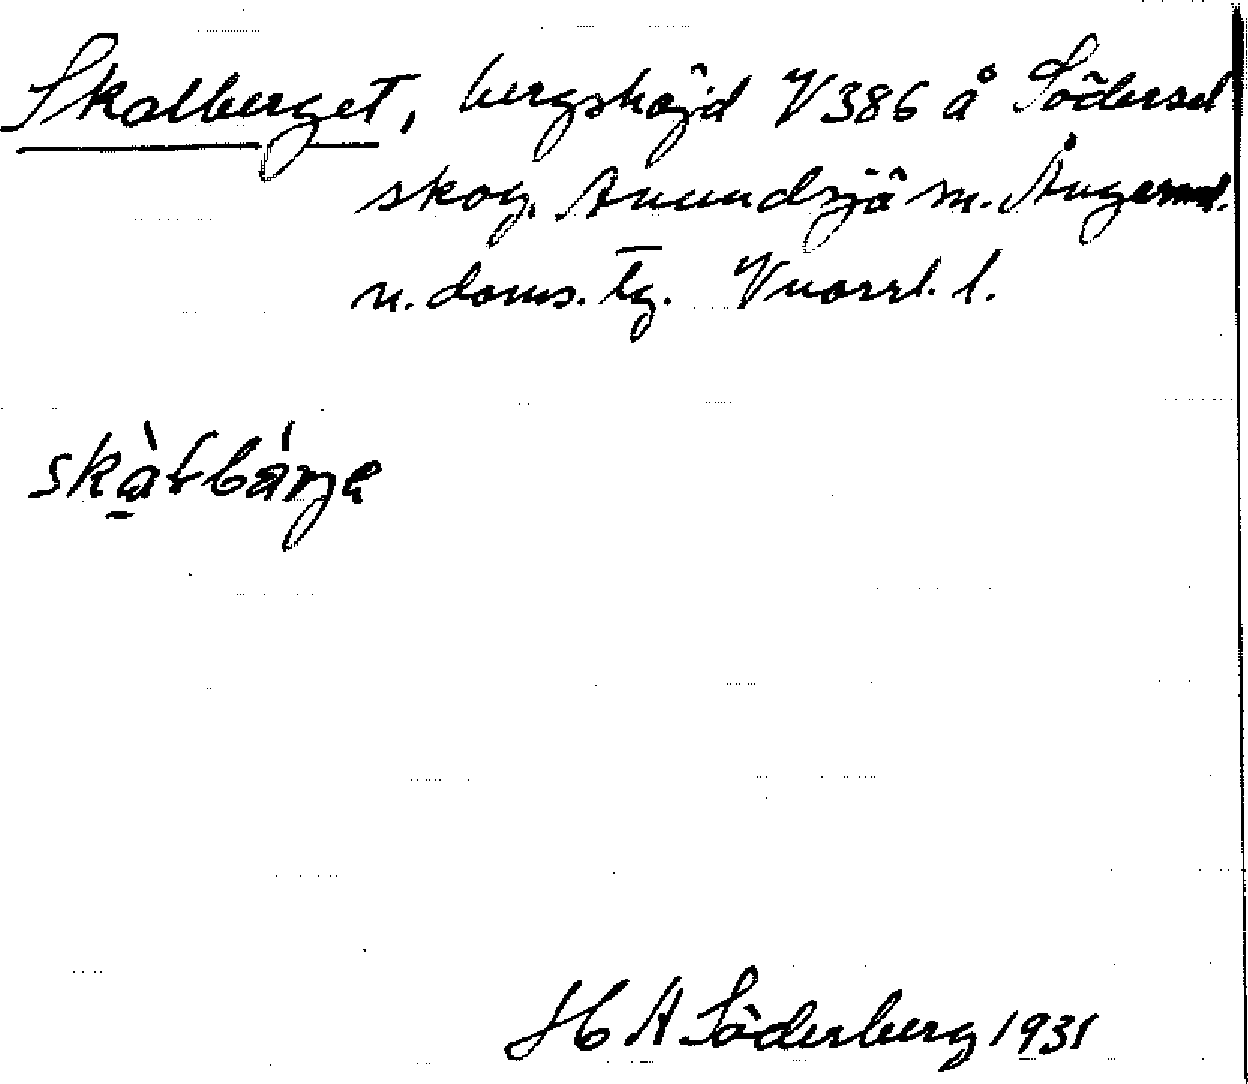 Skalberget, bergshöjd V 386 å Södersel
skog, Anundsjö sn. Ångerml.
n. doms. tg. Vnorrl. l.
skàłbárjɐ
H A Söderberg 1931